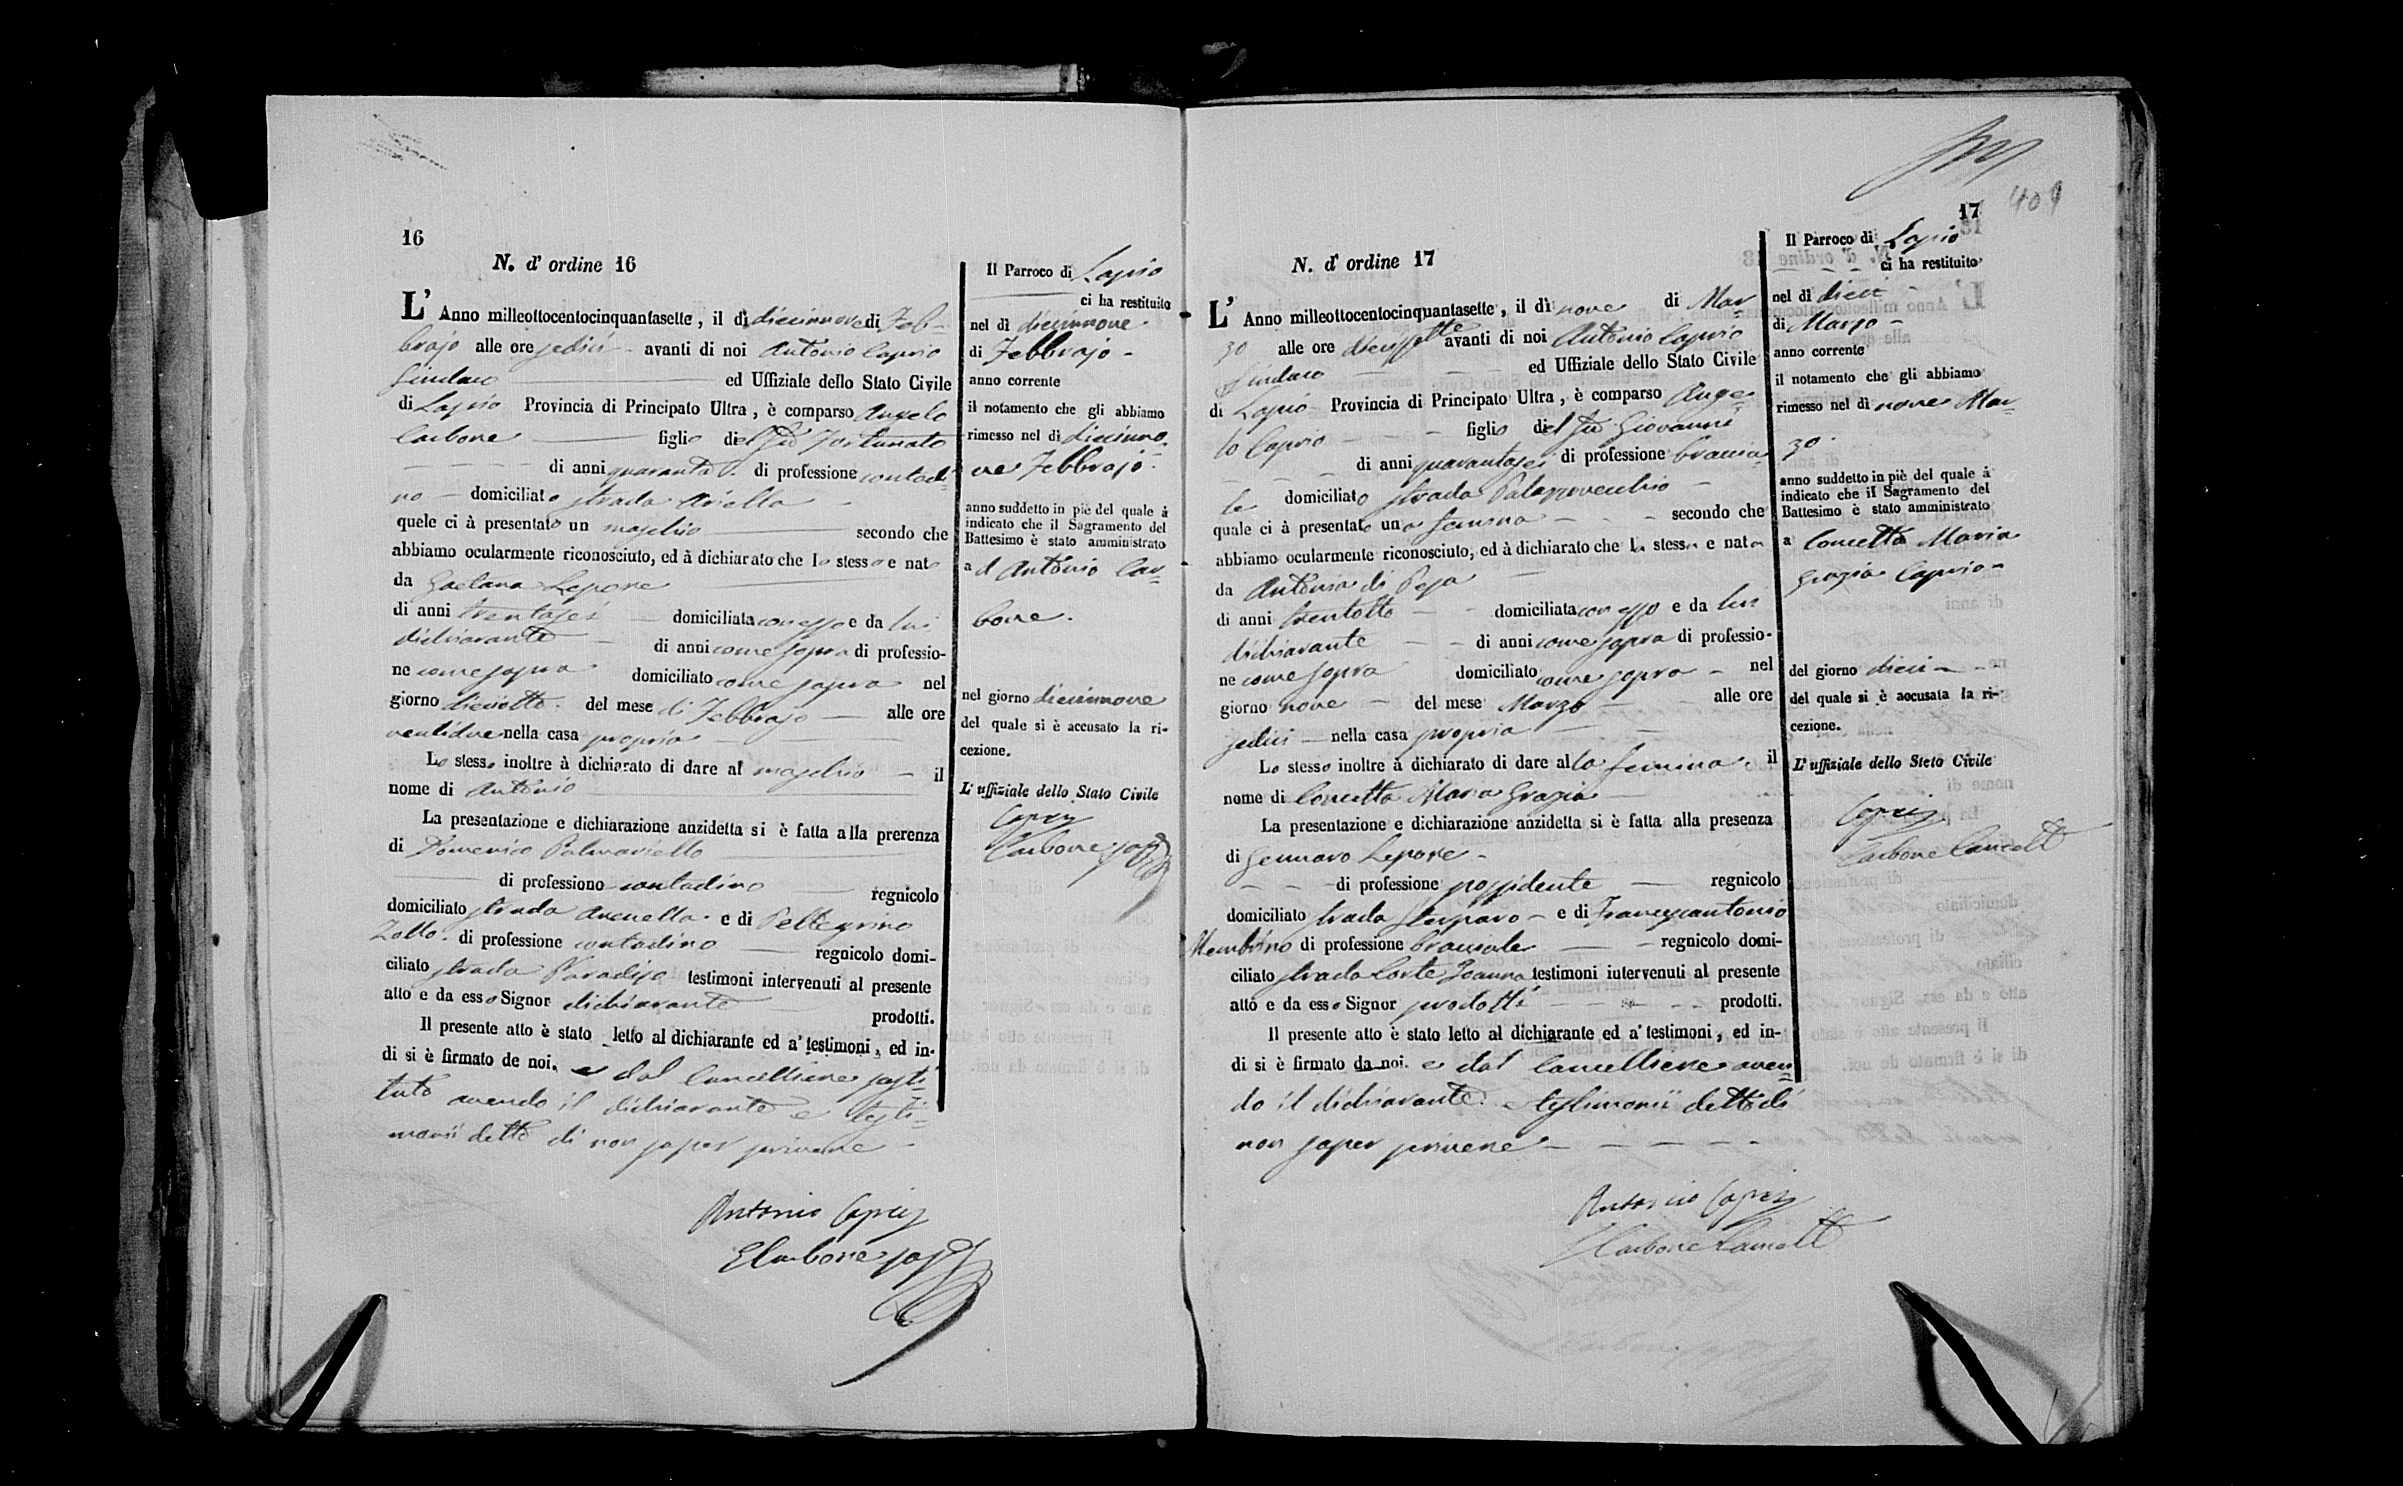 16
N. d' ordine 16
L' Anno milleottocentocinquantasette, il dì diecinnove di Feb-
brajo alle ore sedici avanti di noi Antonio Caprio
Sindaco ed Uffiziale dello Stato Civile
di Lapio Provincia di Principato Ultra, è comparso Angelo
Carbone figlio del fù Fortunato
di anni quaranta di professione contadi-
no domiciliato strada Ariella
quele ci à presentato un maschio secondo che
abbiamo ocularmente riconosciuto, ed à dichiarato che lo stesso e nato
da Gaetana Lepore
di anni trentasei domiciliata con esso e da lui
dichiarante di anni come sopra di professio-
ne come sopra domiciliato come sopra nel
giorno dieciotto del mese di Febbrajo alle ore
ventidue nella casa propria
Lo stesso inoltre à dichiarato di dare al maschio il
nome di Antonio
La presentazione e dichiarazione anzidetta si è fatta alla prerenza
di Domenico Palmariello
di professiono contadino regnicolo
domiciliato strada e di Pellegrino
Zollo di professione contadino regnicolo domi-
ciliato strada Paradiso testimoni intervenuti al presente
atto e da esso Signor dichiarante prodotti.
Il presente atto è stato letto al dichiarante ed a' testimoni, ed in-
di si è firmato de noi, e dal Cancelliere sosti-
tuto avendo il dichiarante e testi-
monii detto di non saper scrivere
Antonio Caprio
Carbone sost
Il Parroco di Lapio
ci ha restituito
nel dì diecinnove
di Febbrajo
anno corrente
il notamento che gli abbiamo
rimesso nel di diecinno-
ve Febbrajo
anno suddetto in piè del quale à
indicato che il Sagramento del
Battesimo è stato amministrato
a d Antonio Car-
bone.
nel giorno diecinnove
del quale si è accusato la ri-
cezione.
L' uffiziale dello Stato Civile
Caprio
Carbone sost
17
409
N. d' ordine 17
L' Anno milleottocentocinquantasette, il dì nove di Mar-
zo alle ore diecissette avanti di noi Antonio Caprio
Sindaco ed Uffiziale dello Stato Civile
di Lapio Provincia di Principato Ultra, è comparso Ange-
lo Caprio figlio del fù Giovanni
di anni quarantasei di professione braccia-
le domiciliato strada Palazzovecchio
quale ci à presentato una femina secondo che
abbiamo ocularmente riconosciuto, ed à dichiarato che la stessa e nata
da Antonia di Pesa
di anni trentotto domiciliata con esso e da lui
dichiarante di anni come sopra di professio-
ne come sopra domiciliato come sopra nel
giorno nove del mese Marzo alle ore
sedici nella casa propria
Lo stesso inoltre à dichiarato di dare alla femina il
nome di Concetta Maria Grazia
La presentazione e dichiarazione anzidetta si è fatta alla presenza
di Gennaro Lepore
di professione possidente regnicolo
domiciliato strada e di Francescantonio
Membrino di professione bracciale regnicolo domi-
ciliato strada Corte Joanna testimoni intervenuti al presente
atto e da esso Signor prodotti prodotti.
Il presente atto è stato letto al dichiarante ed a' testimoni, ed in-
di si è firmato da noi. e dal Cancelliere aven-
do il dichiarante e testimonii detto di
non saper scrivere
Antonio Caprio
Carbone Cancell
Il Parroco di Lapio
ci ha restituito
nel dì dieci
di Marzo
anno corrente
il notamento che gli abbiamo
rimesso nel dì nove Mar-
zo
anno suddetto in piè del quale à
indicato che il Sagramento del
Battesimo è stato amministrato
a Concetta Maria
Grazia Caprio
del giorno dieci
del quale si è accusata la ri-
cezione.
L' uffiziale dello Steto Civile
Caprio
Carbone Cancell